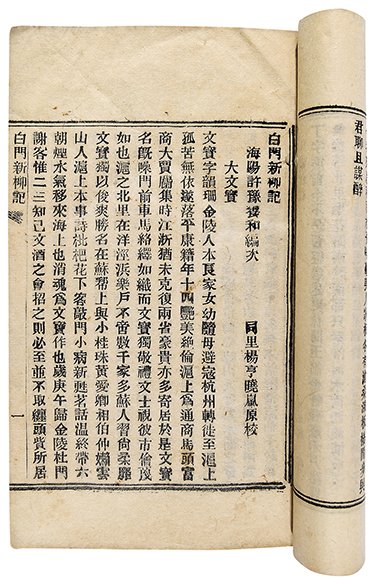 君聊且謀醉
白門新柳記
海陽許豫養和編次　同里楊亨曉嵐原校
大文寶
文寶字韻珊金陵人本良家女幼隨母避寇杭州轉徙至滬上
孤苦無依遂落平康籍年十四艷美絕倫滬上爲通商馬頭富
商大賈屬集時江浙猶未克復兩省豪貴亦多寄居於是文寶
名旣噪門前車馬絡繹如織而文寶獨敬禮文士視彼市儈茂
如也滬之北里在洋涇浜樂戶不啻數千家多蘇人習尚柔靡
文寶獨以俊爽勝名在蘇幫上與小桂珠黃愛卿相伯仲嬾雲
山人滬上本事詩枇杷花下客敲門小病新甦茗話温終帶六
朝煙水氣移來海上也消魂爲文寶作也歲庚午歸金陵杜門
謝客惟二三知己文酒之會招之則必至並不取纏頭貲所居
白門新柳記　一